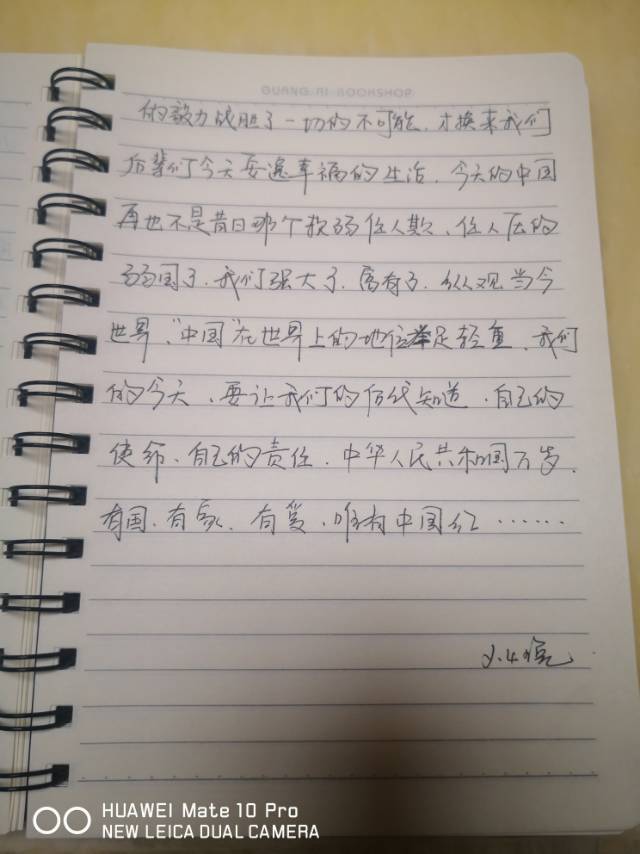 GUANG RI BOOKSHOP
的毅力战胜了一切的不可能、才换来我们
后辈们今天安逸幸福的生活、今天的中国
再也不是昔日那个软弱任人欺、任人压的
弱国了、我们强大了、富有了、纵观当今
世界、“中国”在世界上的地位举足轻重、我们
的今天、要让我们的后代知道、自己的
使命、自己的责任、中华人民共和国万岁、
有国、有家、有爱、唯有中国红……
HUAWEI Mate 10 Pro
NEW LEICA DUAL CAMERA